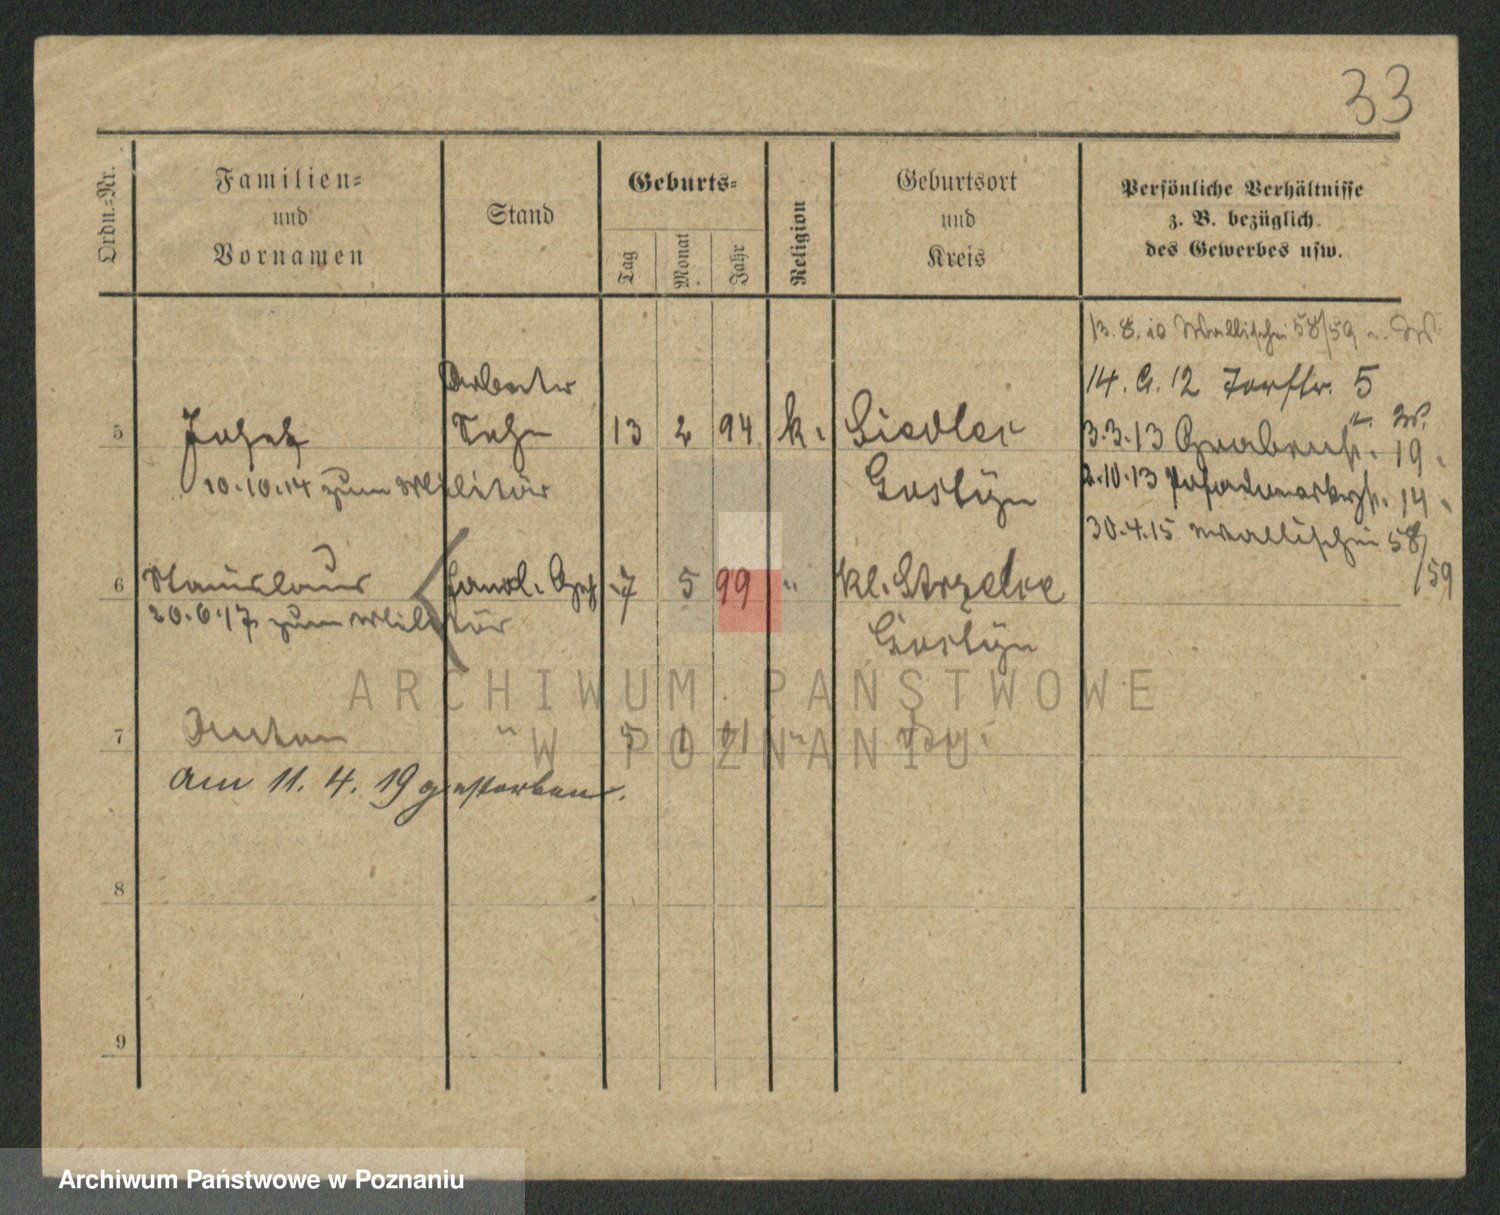 33
Ordn.-Nr.
Familien-
und
Vornamen
Stand
Geburts-
Tag
Monat
Jahr
Religion
Geburtsort
und
Kreis
Persönliche Verhältnisse
z. B. bezüglich
des Gewerbes usw.
13. 8. 10 Wallischei 58/59
14. 12 Torfstr. 5
3.3.13 Grabenstr. 19
2.10.13 14
30.4.15 Wallischei 58/59
Arbeiter
5 Josef Sohn 13 2 94 k. Siedlec
10.10.14 zum Militär Gostyn
6 Stanislaus Handl. 7 5 99 " Kl. Strzelce
20.6.17 zum Militär Gostyn
7 Anton " 5 1
am 11. 4. 19 gestorben.
8
9
ARCHIWUM PAŃSTWOWE
W POZNANIU
Archiwum Państwowe w Poznaniu